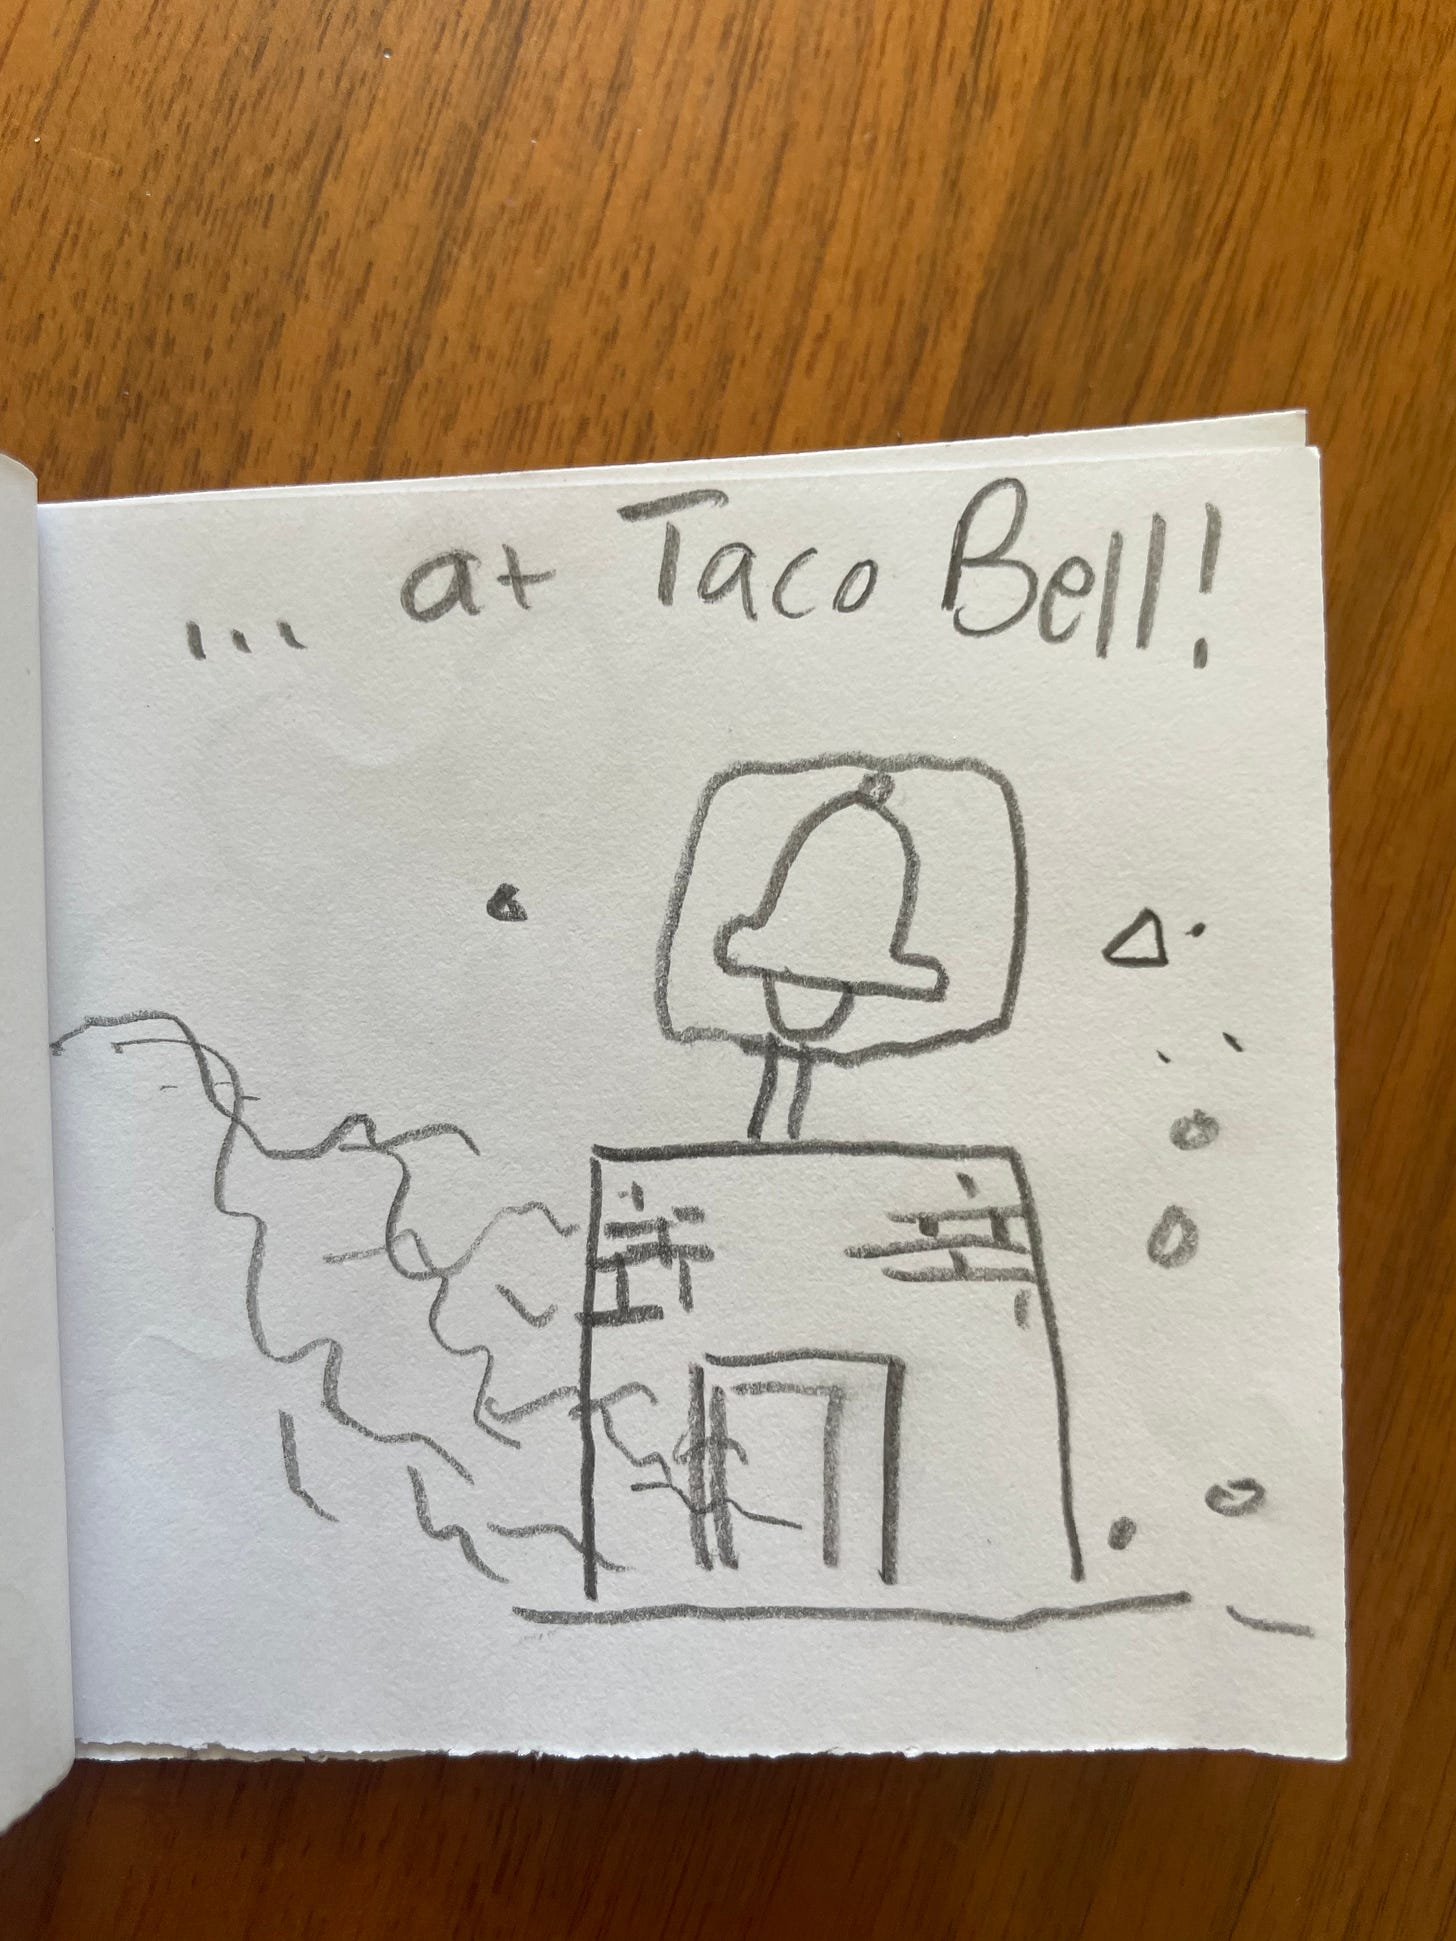 ... at Taco Bell!